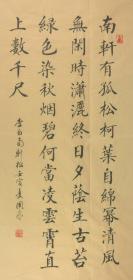 南軒有孤松柯葉自綿冪清風
無閑時瀟灑終日夕蔭生古苔
綠色染秋烟碧何當凌雲霄直
上數千尺
李白南軒松壬寅夏國